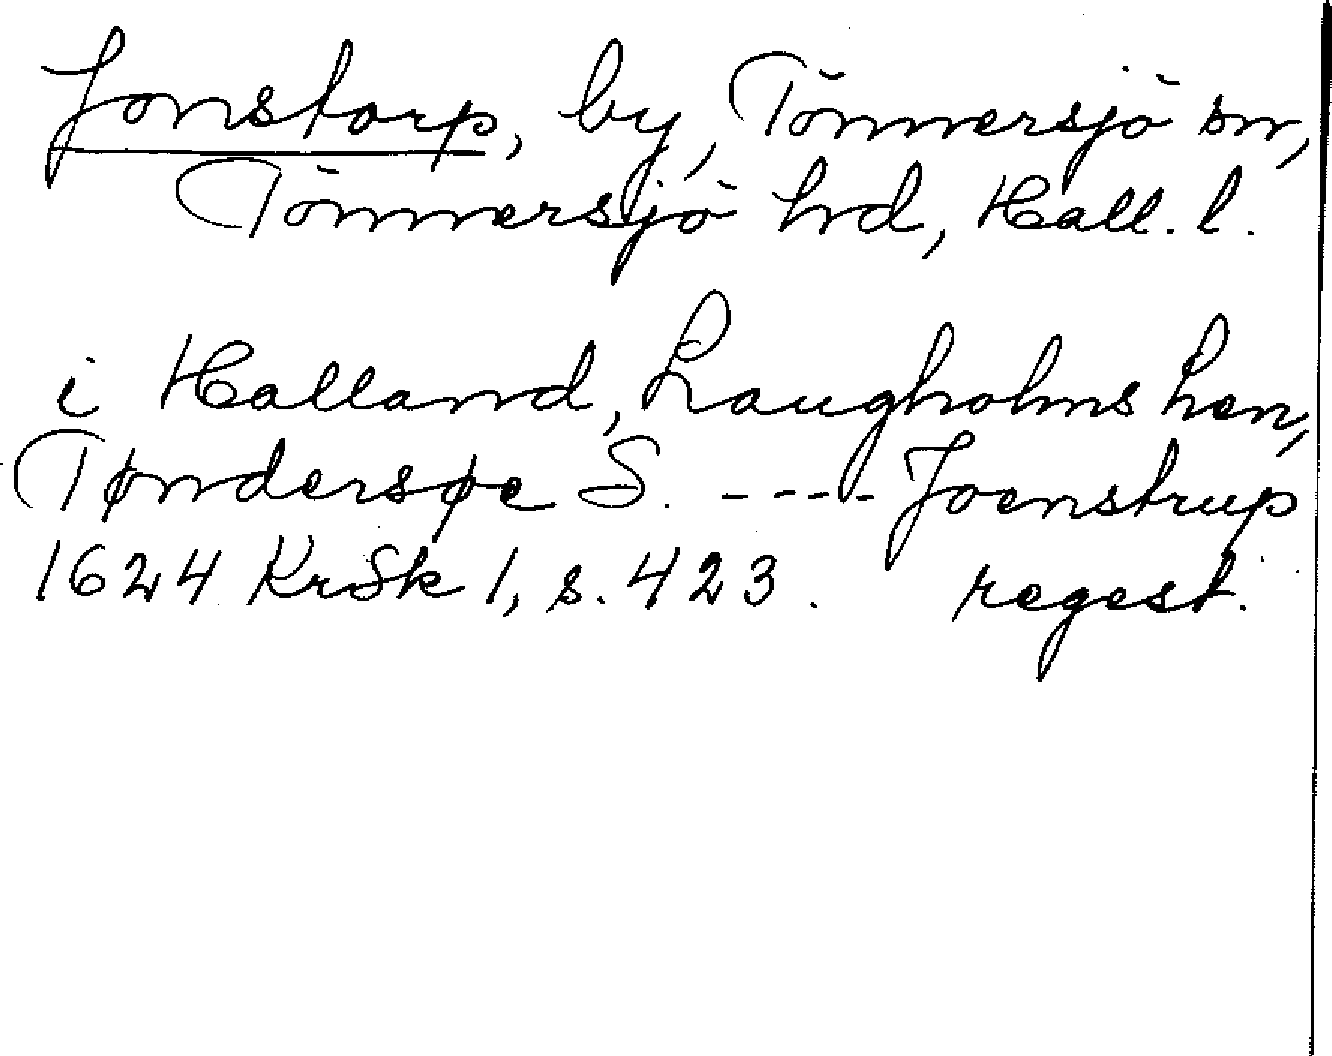 Jonstorp, by, Tönnersjö sn,
Tönnersjö hrd, Hall. l.
i Halland, Laugholms Len,
Tøndersøe S. ---- Joenstrup
1624 KrSk 1, s. 423. regest.